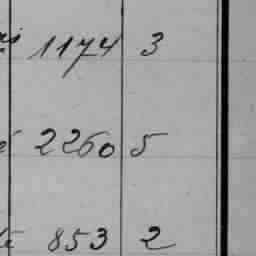 1174 3
2260 5
853 2